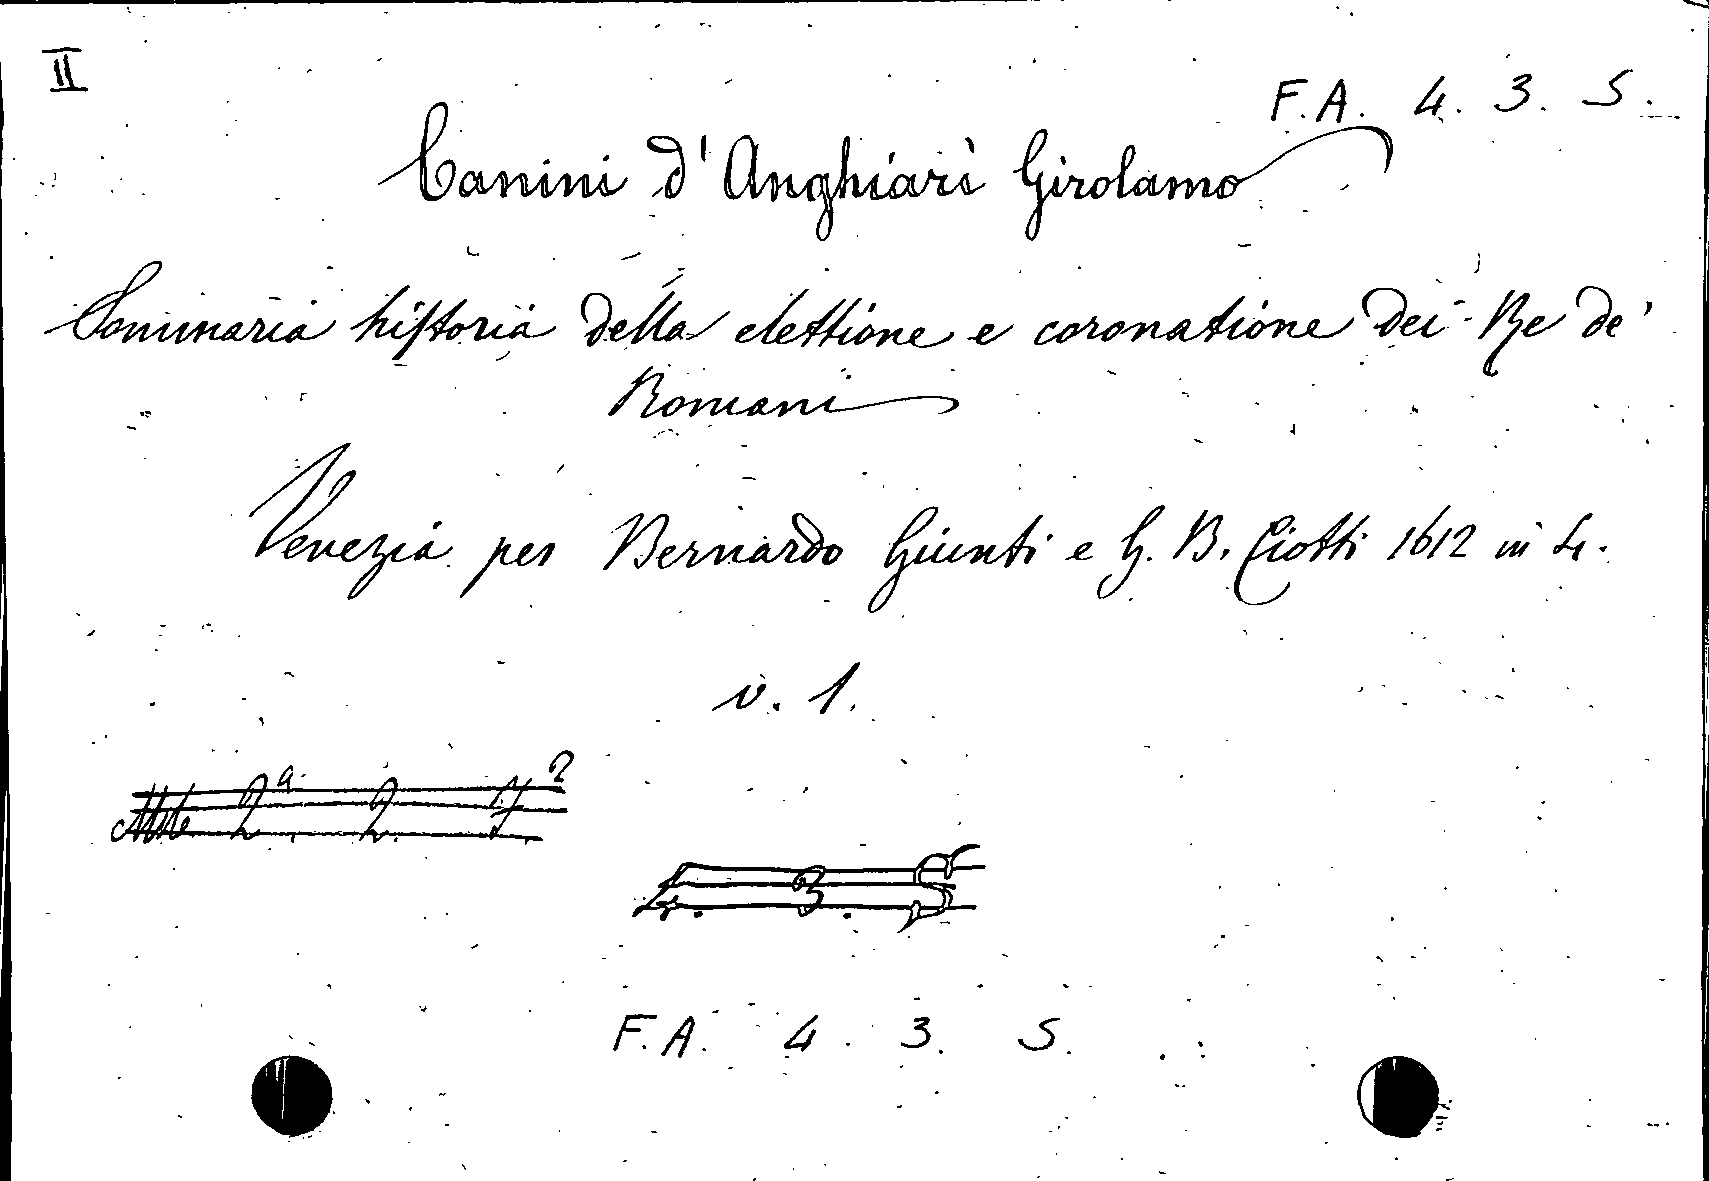 II
F.A. 4. 3. 5.
Canini d'Anghiari Girolamo
Sommaria historia della elettione e coronatione dei Re de'
Romani
Venezia per Bernardo Giunti e G. B. Ciotti 1612 in 4.
v. 1.
2ª. 2. 7²
4. 3. 5
F.A. 4. 3. 5.